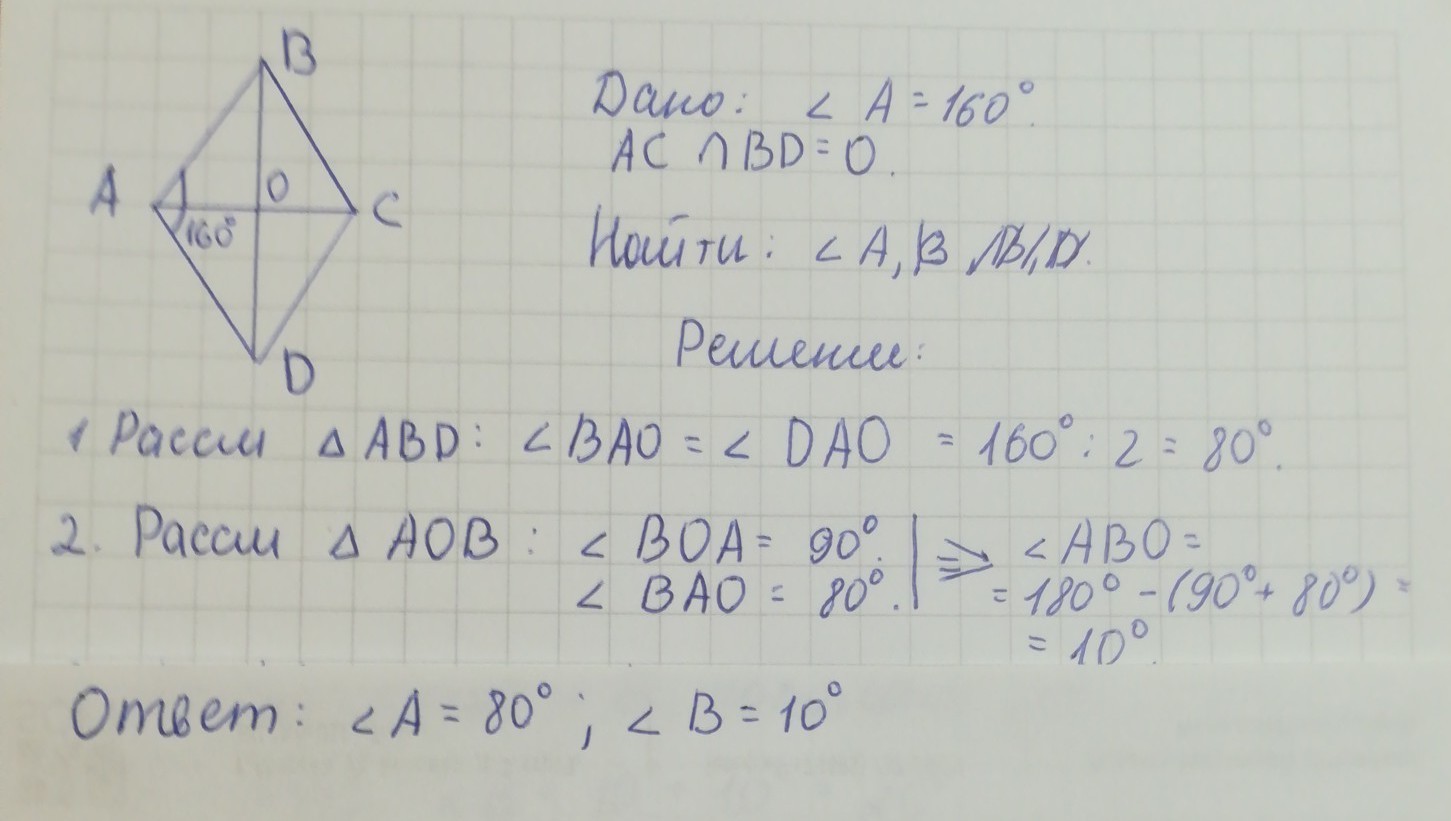 B
A
O
C
160°
D
Дано: ∠ A = 160°.
AC ∩ BD = O.
Найти: ∠ A, B
Решение:
1 Рассм △ ABD: ∠ BAO = ∠ DAO = 160° : 2 = 80°.
2. Рассм △ AOB : ∠ BOA = 90°. | ⇒ ∠ ABO =
∠ BAO = 80°. | = 180° - (90° + 80°) =
= 10°.
Ответ: ∠ A = 80° ; ∠ B = 10°